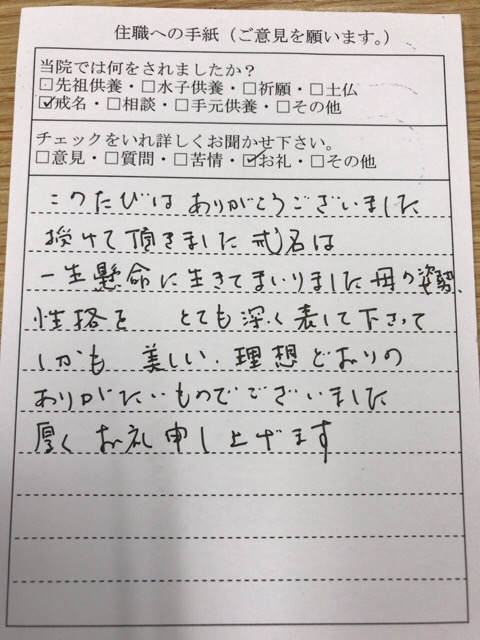 住職への手紙（ご意見を願います。）
当院では何をされましたか？
□先祖供養・□水子供養・□祈願・□土仏
☑戒名・□相談・□手元供養・□その他
チェックをいれ詳しくお聞かせ下さい。
□意見・□質問・□苦情・☑お礼・□その他
このたびは ありがとうございました
授けて頂きました 戒名は
一生懸命に生きてまいりました 母の姿勢、
性格を とても深く表して下さって
しかも 美しい、理想どおりの
ありがたいものでございました
厚く お礼申し上げます